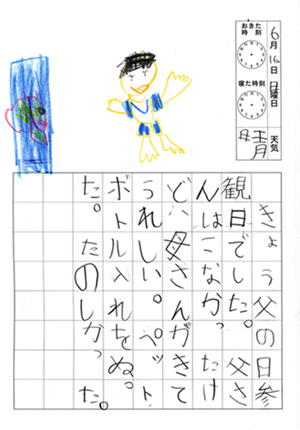 6月16日日曜日
おきた時刻
寝た時刻
天気
晴
きょう父の日参
観日でした。父さ
んはこなかったけ
ど、母さんがきて
うれしい。ペット
ボトル入れをぬ。
た。たのしかった。